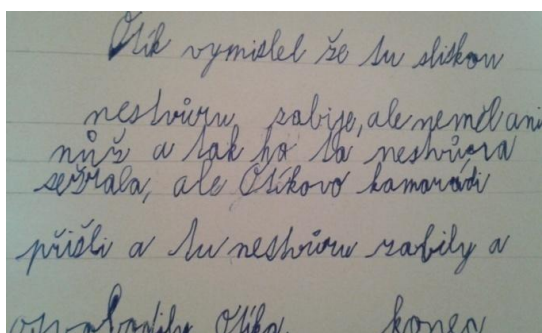 Otík vymislel že tu sliskou
nestvůru zabije, ale neměl ani
nůž a tak ho ta nestvůra
sežrala, ale Otíkovo kamarádi
přišli a tu nestvůru zabily a
osvobodily Otíka konec